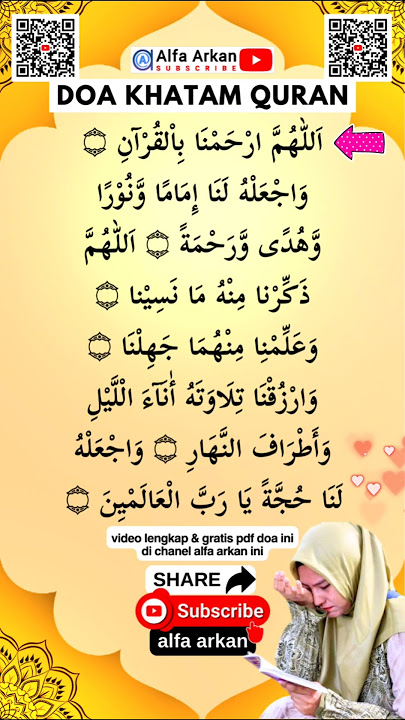 Alfa Arkan
SUBSCRIBE
DOA KHATAM QURAN
اَللّٰهُمَّ ارْحَمْنَا بِاْلقُرْآنِ ۝
وَاجْعَلْهُ لَنَا إِمَامًا وَّنُوْرًا
وَّهُدًى وَّرَحْمَةً ۝ اَللّٰهُمَّ
ذَكِّرْنا مِنْهُ مَا نَسِيْنا ۝
وَعَلِّمْنِا مِنْهُمَا جَهِلْنَا ۝
وَارْزُقْنَا تِلَاوَتَهُ أٰنَآءَ الْلَّيْلِ
وَأَطْرَافَ النَّهَارِ ۝ وَاجْعَلْهُ
لَنَا حُجَّةً يَا رَبَّ الْعَالَمْيِنَ ۝
video lengkap & gratis pdf doa ini
di chanel alfa arkan ini
SHARE
Subscribe
alfa arkan